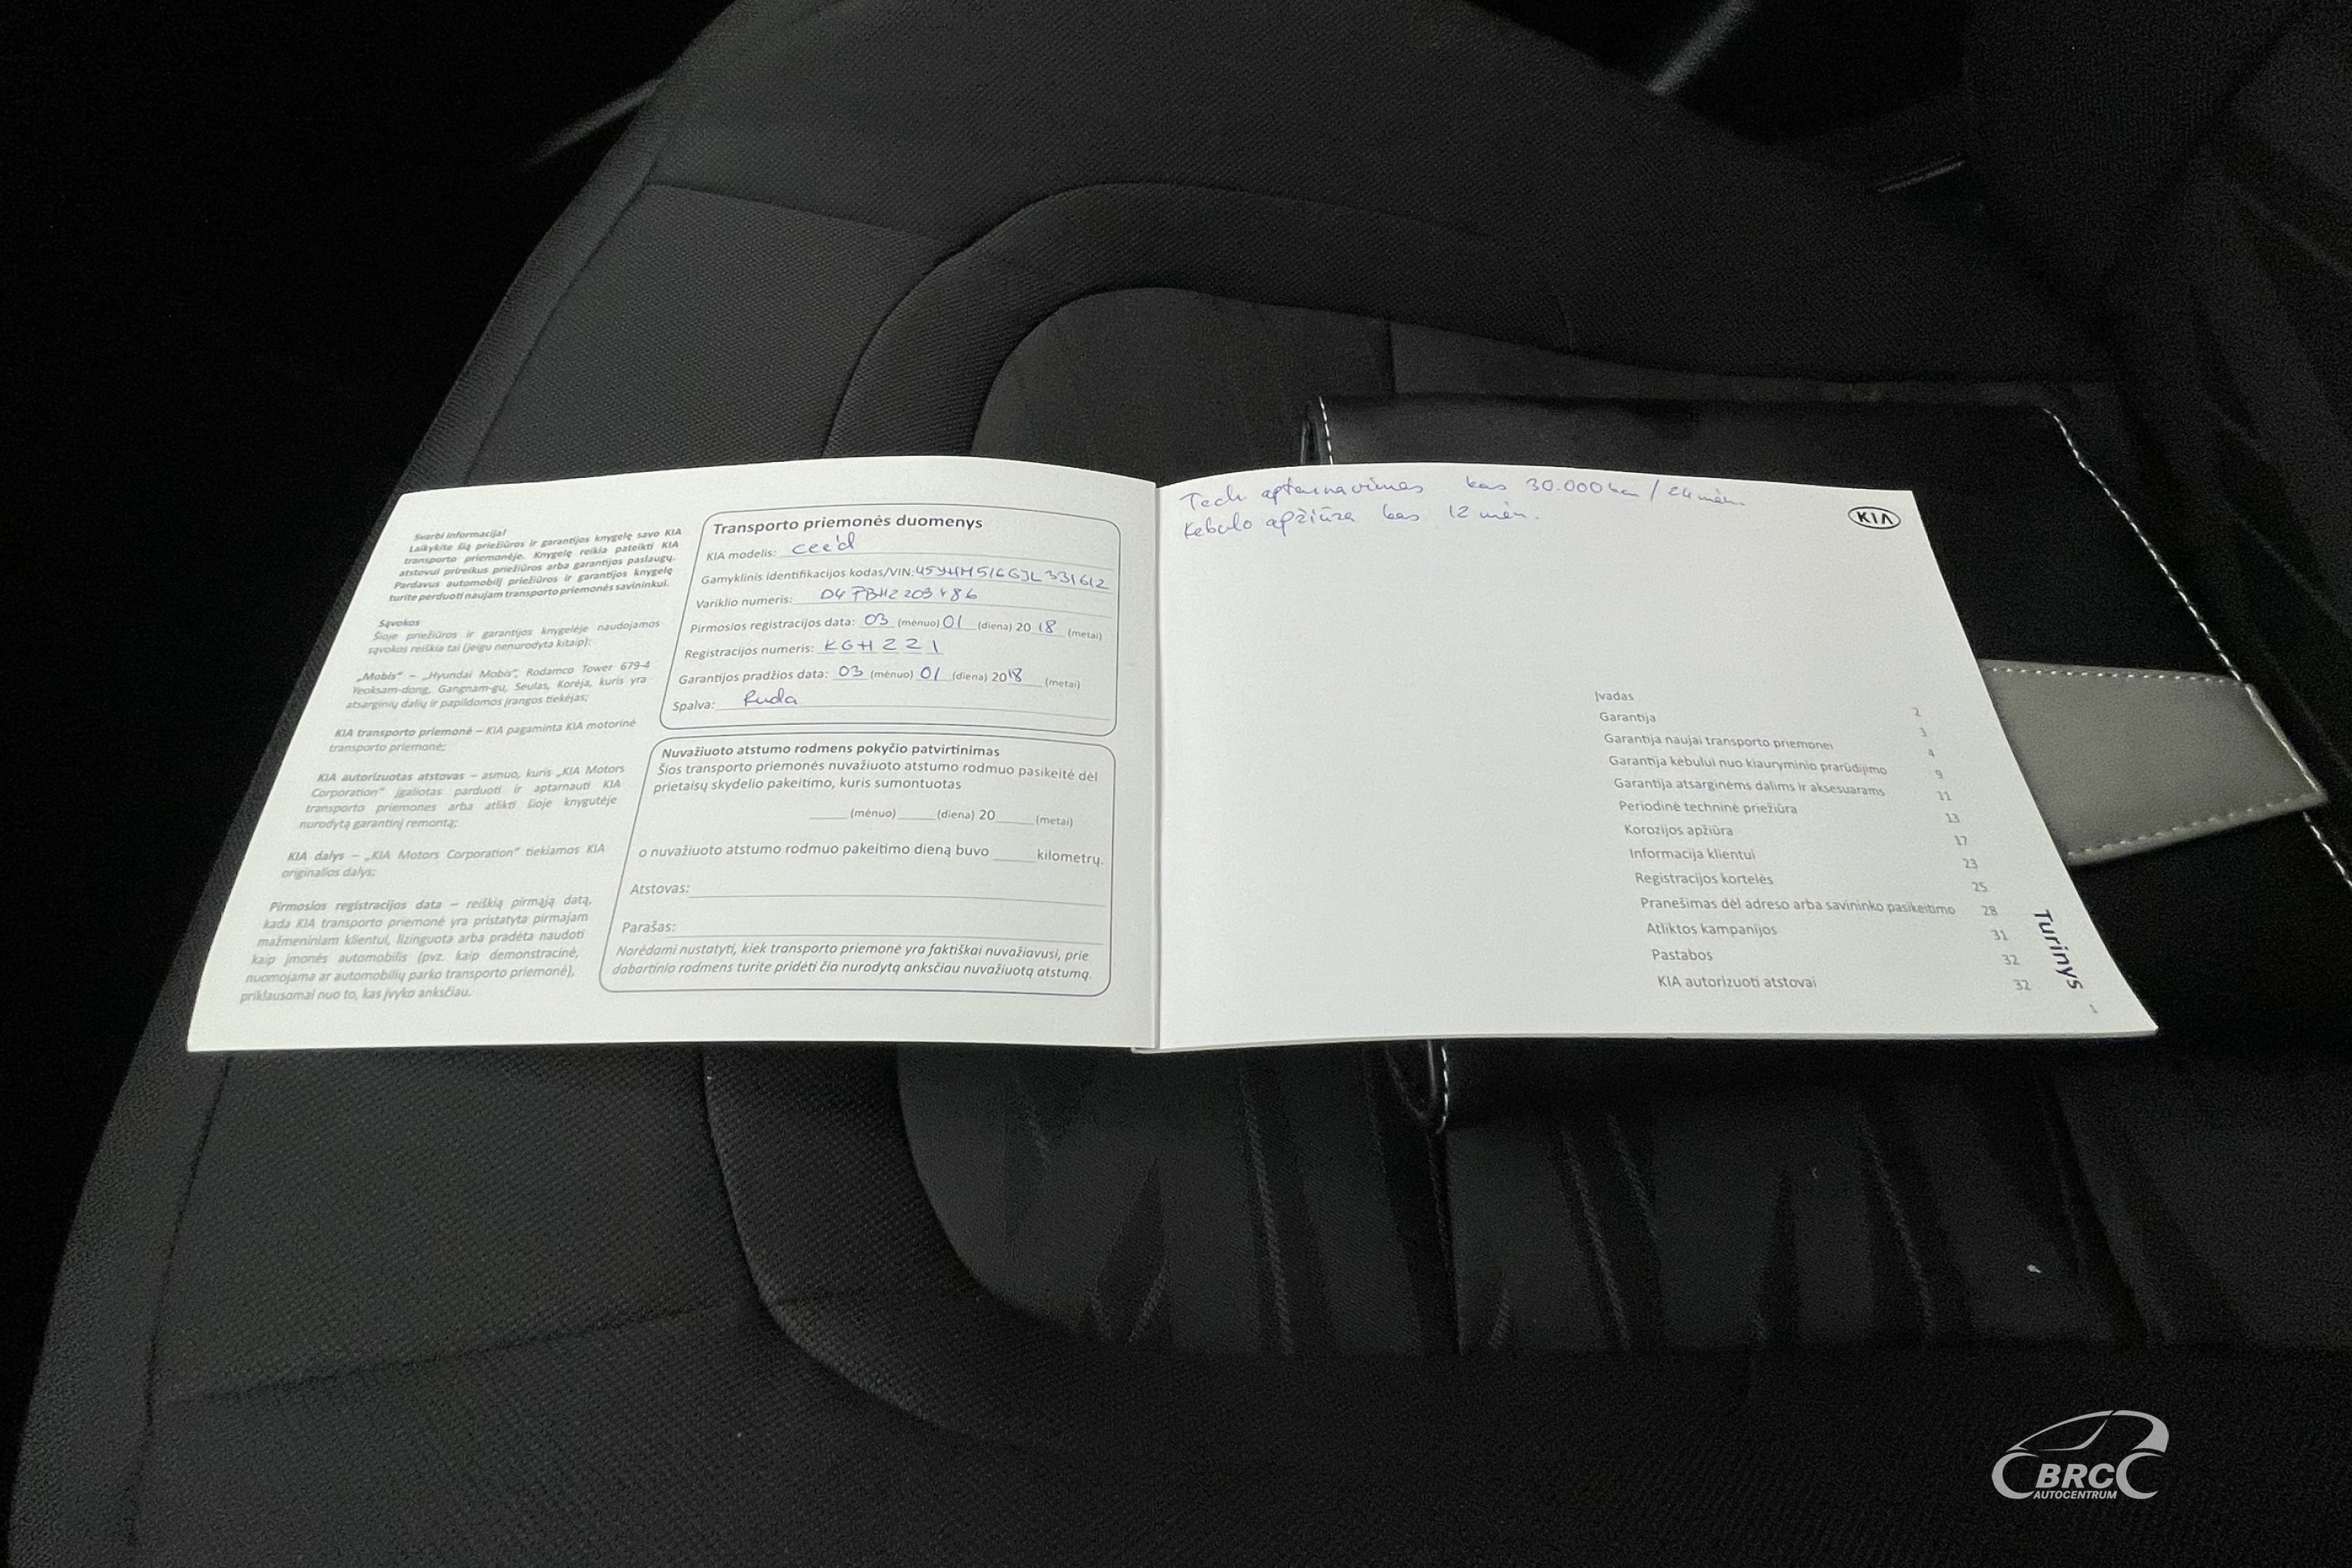 Svarbi informacija!
Laikykite šią priežiūros ir garantijos knygelę savo KIA
transporto priemonėje. Knygelę reikia pateikti KIA
atstovui prireikus priežiūros arba garantijos paslaugų.
Pardavus automobilį priežiūros ir garantijos knygelę
turite perduoti naujam transporto priemonės savininkui.
Sąvokos
Šioje priežiūros ir garantijos knygelėje naudojamos
sąvokos reiškia tai (jeigu nenurodyta kitaip):
„Mobis“ – „Hyundai Mobis“, Rodamco Tower 679-4
Yeoksam-dong, Gangnam-gu, Seulas, Korėja, kuris yra
atsarginių dalių ir papildomos įrangos tiekėjas;
KIA transporto priemonė – KIA pagaminta KIA motorinė
transporto priemonė;
KIA autorizuotas atstovas – asmuo, kuris „KIA Motors
Corporation“ įgaliotas parduoti ir aptarnauti KIA
transporto priemones arba atlikti šioje knygutėje
nurodytą garantinį remontą;
KIA dalys – „KIA Motors Corporation“ tiekiamos KIA
originalios dalys;
Pirmosios registracijos data – reiškią pirmąją datą,
kada KIA transporto priemonė yra pristatyta pirmajam
mažmeniniam klientui, lizinguota arba pradėta naudoti
kaip įmonės automobilis (pvz. kaip demonstracinė,
nuomojama ar automobilių parko transporto priemonė),
priklausomai nuo to, kas įvyko anksčiau.
Transporto priemonės duomenys
KIA modelis: cee'd
Gamyklinis identifikacijos kodas/VIN:
Variklio numeris:
Pirmosios registracijos data: 03 (mėnuo) 01 (diena) 2018 (metai)
Registracijos numeris: KGH 221
Garantijos pradžios data: 03 (mėnuo) 01 (diena) 2018 (metai)
Spalva: Ruda
Nuvažiuoto atstumo rodmens pokyčio patvirtinimas
Šios transporto priemonės nuvažiuoto atstumo rodmuo pasikeitė dėl
prietaisų skydelio pakeitimo, kuris sumontuotas
(mėnuo) (diena) 20 (metai)
o nuvažiuoto atstumo rodmuo pakeitimo dieną buvo kilometrų.
Atstovas:
Parašas:
Norėdami nustatyti, kiek transporto priemonė yra faktiškai nuvažiavusi, prie
dabartinio rodmens turite pridėti čia nurodytą anksčiau nuvažiuotą atstumą.
Tech aptarnavimas kas 30.000 km / 24 mėn.
Kebulo apžiūra kas 12 mėn.
KIA
Įvadas 2
Garantija 3
Garantija naujai transporto priemonei 4
Garantija kėbului nuo kiauryminio prarūdijimo 9
Garantija atsarginėms dalims ir aksesuarams 11
Periodinė techninė priežiūra 13
Korozijos apžiūra 17
Informacija klientui 23
Registracijos kortelės 25
Pranešimas dėl adreso arba savininko pasikeitimo 28
Atliktos kampanijos 31
Pastabos 32
KIA autorizuoti atstovai 32
Turinys
1
BRC
AUTOCENTRUM